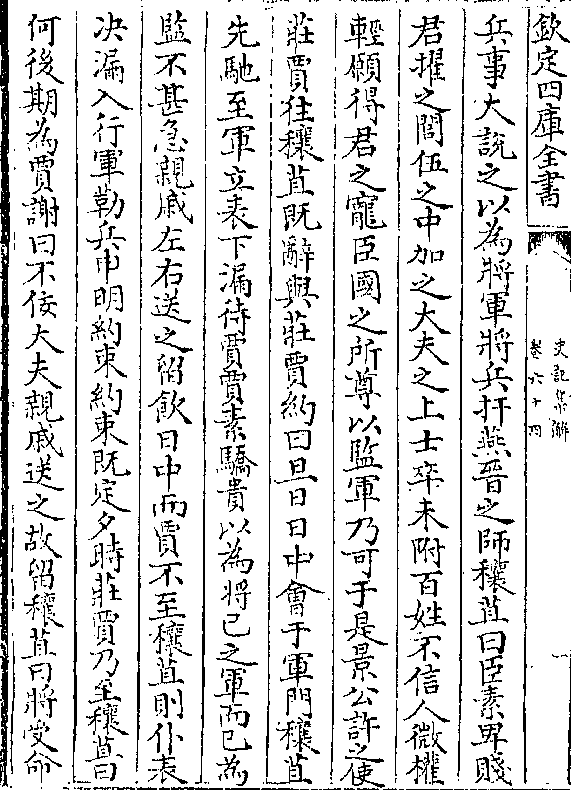 欽定四庫全書
史記集解
卷六十四
兵事大說之以為將軍將兵扞燕晉之師穰苴曰臣素卑賤
君擢之閭伍之中加之大夫之上士卒未附百姓不信人微權
輕願得君之寵臣國之所尊以監軍乃可于是景公許之使
莊賈往穰苴既辭與莊賈約曰旦日日中會于軍門穰苴
先馳至軍立表下漏待賈賈素驕貴以為將已之軍而已為
監不甚急親戚左右送之留飲日中而賈不至穰苴則仆表
决漏入行軍勒兵申明約束約束既定夕時莊賈乃至穰苴曰
何後期為賈謝曰不佞大夫親戚送之故留穰苴曰將受命